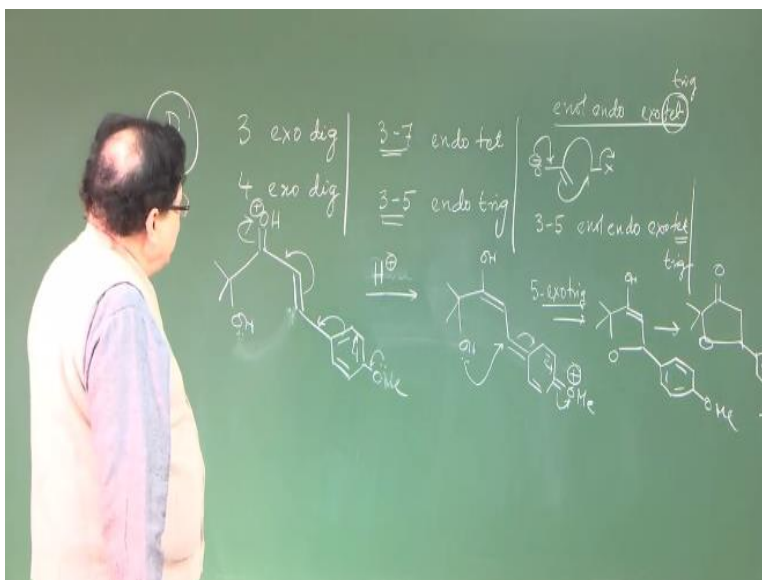 3 exo dig
4 exo dig
3-7 endo tet
3-5 endo trig
trig
enol endo exo tet
3-5 enol endo exo tet
trig
⊕
OH
OH
OMe
H⊕
OH
OH
⊕
OMe
5-exotrig
OH
O
OMe
O
O